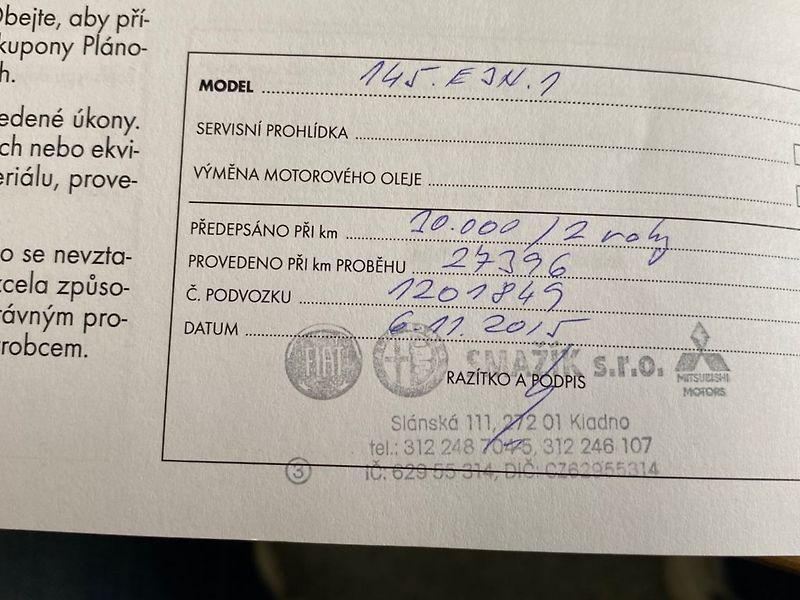 Obejte, aby pří-
kupony Pláno-
h.
edené úkony.
ch nebo ekvi-
eriálu, prove-
o se nevzta-
zcela způso-
rávným pro-
robcem.
MODEL 145.EJN.1
SERVISNÍ PROHLÍDKA
VÝMĚNA MOTOROVÉHO OLEJE
PŘEDEPSÁNO PŘI km 10.000 / 2 roky
PROVEDENO PŘI km PROBĚHU 27396
Č. PODVOZKU 1201849
DATUM 6.11.2015
FIAT SMAŽÍK s.r.o. MITSUBISHI MOTORS
RAZÍTKO A PODPIS
Slánská 111, 272 01 Kladno
tel.: 312 248 704-5, 312 246 107
3 IČ: 629 55 314, DIČ: CZ62955314